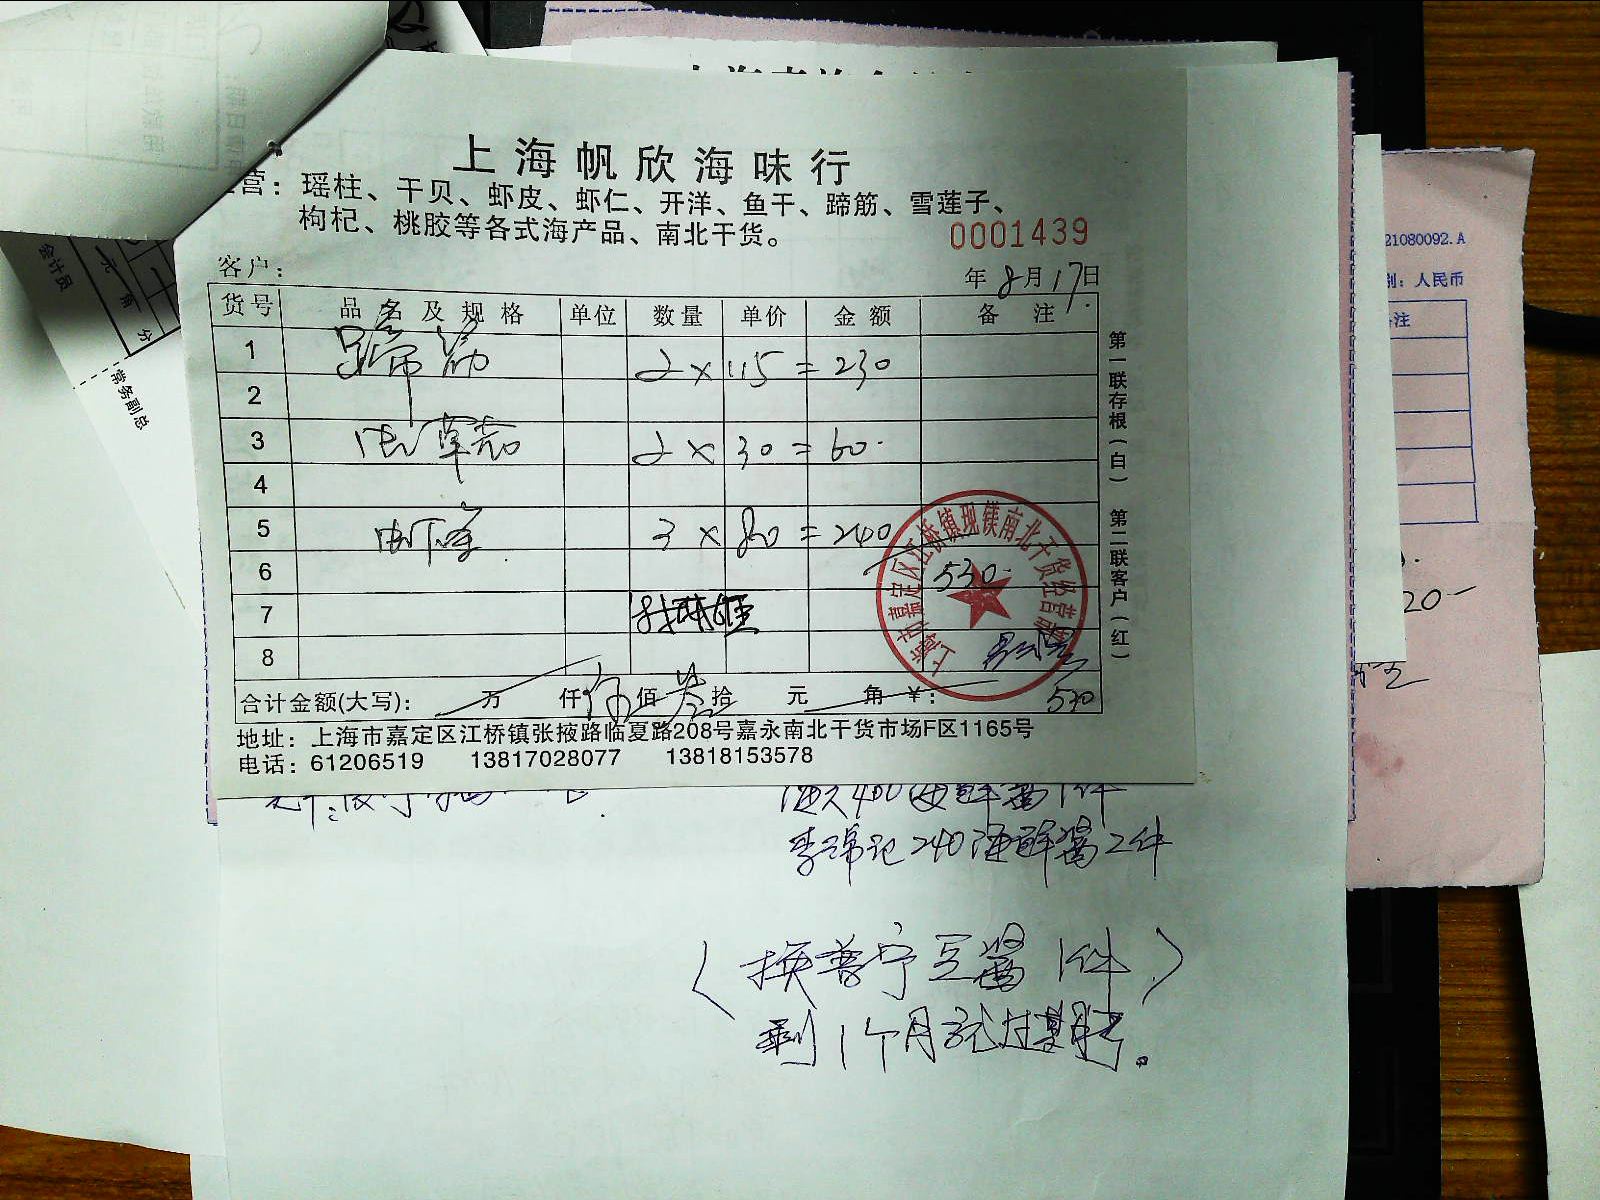 上海帆欣海味行
营：瑶柱、干贝、虾皮、虾仁、开洋、鱼干、蹄筋、雪莲子、
枸杞、桃胶等各式海产品、南北干货。
0001439
客户：
年8月17日
货号 品名及规格 单位 数量 单价 金额 备注
1 蹄筋 2×115=230
2
3 2×30=60
4
5 3×80=240
6 530
7
8
合计金额(大写)： 万 仟 伍佰 叁拾 元 角 ¥： 530
地址：上海市嘉定区江桥镇张掖路临夏路208号嘉永南北干货市场F区1165号
电话：61206519 13817028077 13818153578
第一联存根(白) 第二联客户(红)
上海市嘉定区江桥镇现镁南北干货经营部
海鲜酱1件
李锦记240海鲜酱2件
(换普宁豆酱1件)
剩1个月就过期了。
会计员
元角分
常务副总
21080092.A
别：人民币
备注
20-